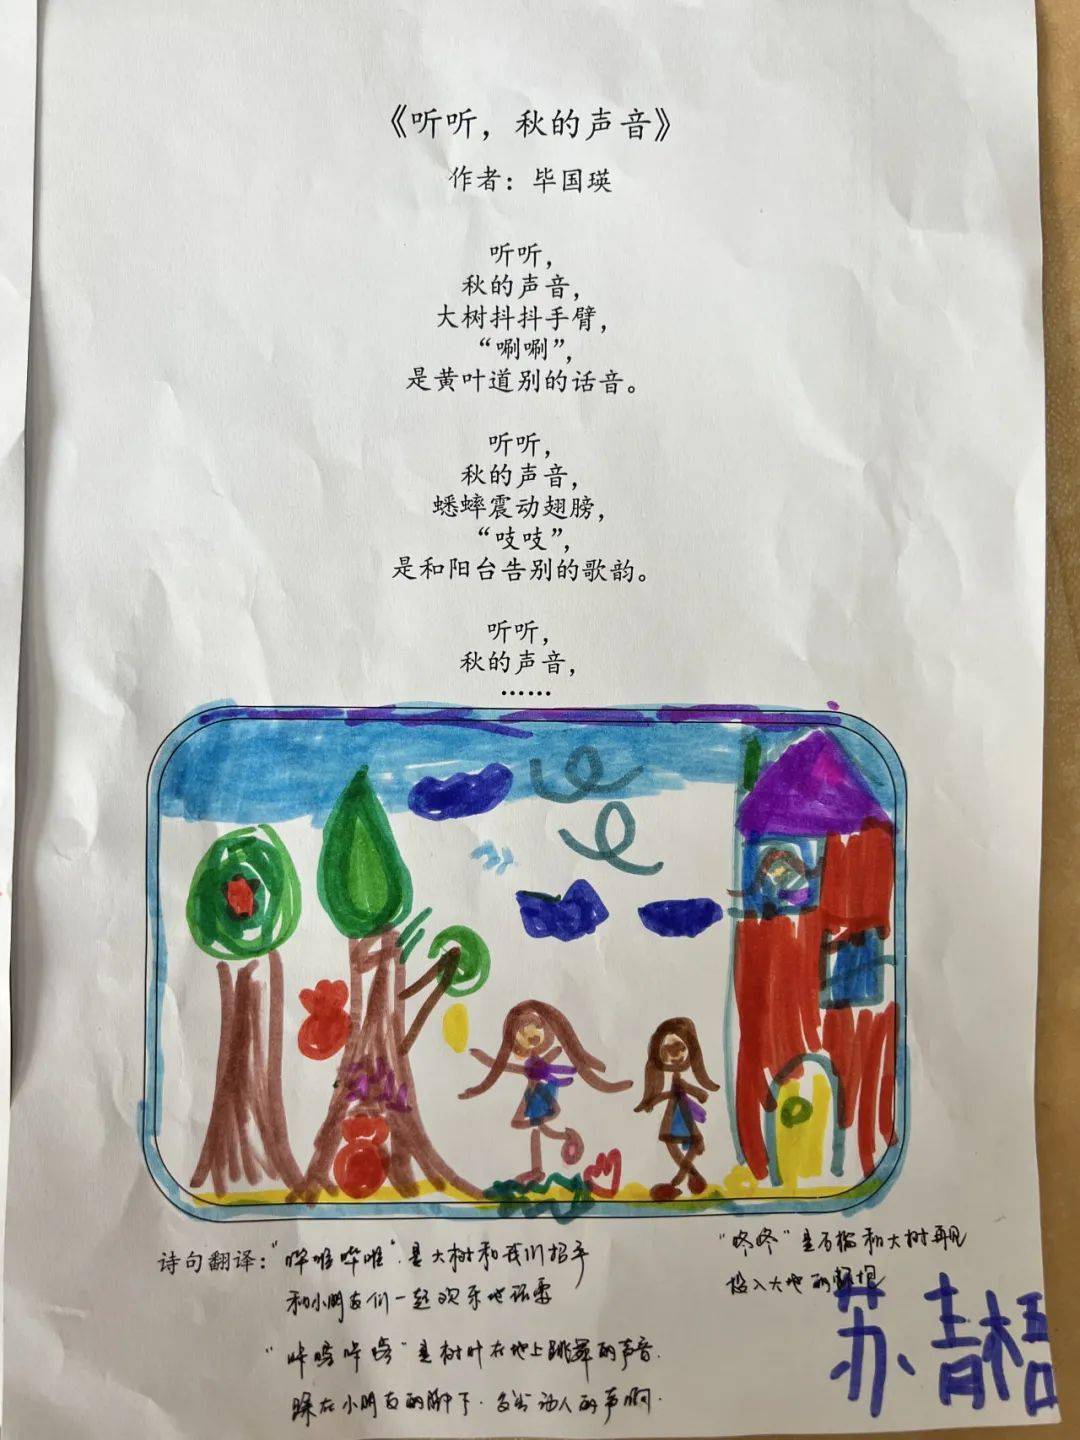 《听听，秋的声音》
作者：毕国瑛
听听，
秋的声音，
大树抖抖手臂，
“唰唰”，
是黄叶道别的话音。
听听，
秋的声音，
蟋蟀震动翅膀，
“吱吱”，
是和阳台告别的歌韵。
听听，
秋的声音，
……
诗句翻译：“哗啦哗啦”是大树和我们招手
和小朋友们一起欢乐地玩耍
“咔嚓咔嚓”是树叶在地上跳舞的声音.
踩在小朋友的脚下. 多 动人的声啊.
“咚咚”是石榴和大树再见
投入大地的怀抱
苏青梧